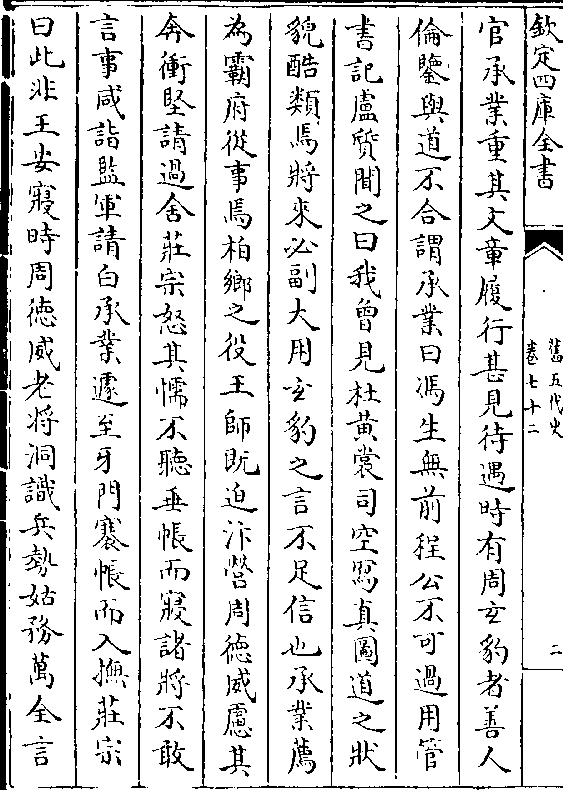 欽定四庫全書
舊五代史
卷七十二
二
官承業重其文章履行甚見待遇時有周玄豹者善人
倫鑒與道不合謂承業曰馮生無前程公不可過用管
書記盧質聞之曰我曾見杜黃裳司空寫真圖道之狀
貌酷類焉將來必副大用玄豹之言不足信也承業薦
為霸府從事焉柏鄉之役王師既迫汴營周徳威慮其
奔衝堅請過舍莊宗怒其懦不聽垂帳而寢諸將不敢
言事咸詣監軍請白承業遽至牙門褰帳而入撫莊宗
曰此非王安寢時周徳威老將洞識兵勢姑務萬全言